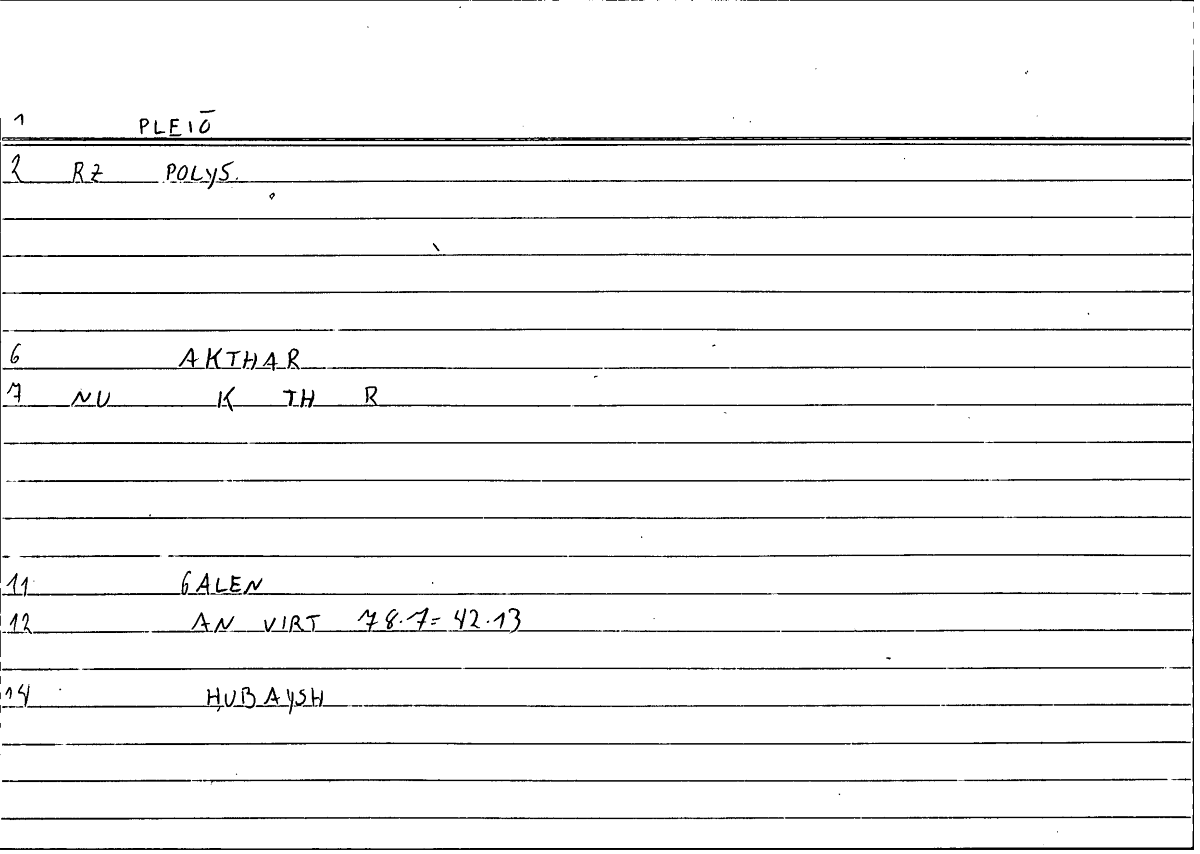 1 PLEIŌ
2 RZ POLYS.
6 AKTHAR
7 NU K TH R
11 GALEN
12 AN VIRT 78.7=42.13
14 ḤUBAYSH